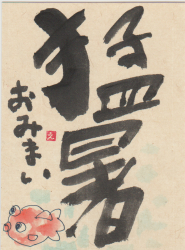 猛暑
おみまい